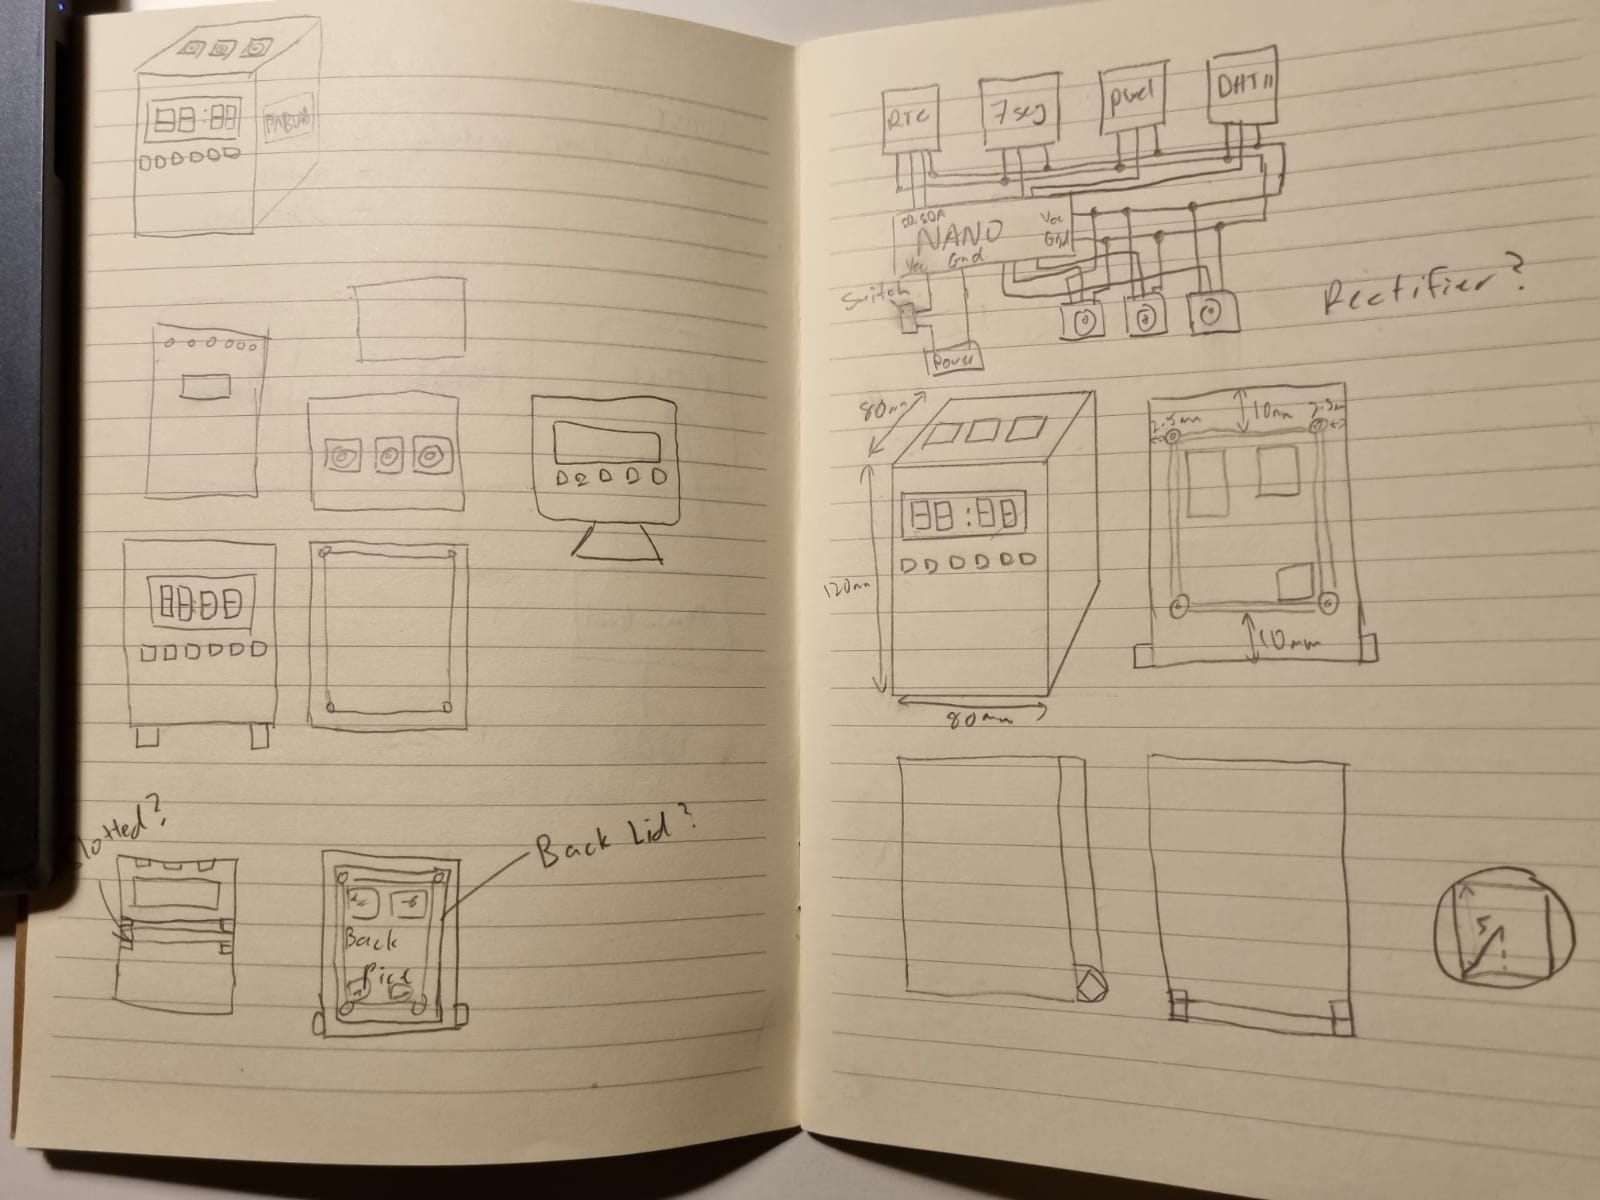 Slotted?
Back Lid?
Back
RTC
7seg
pixel
DHT11
SDA
NANO
Vcc
Gnd
Vcc
Gnd
Switch
Power
Rectifier?
80mm
120mm
80mm
2.5mm
10mm
2.5m
10mm
5